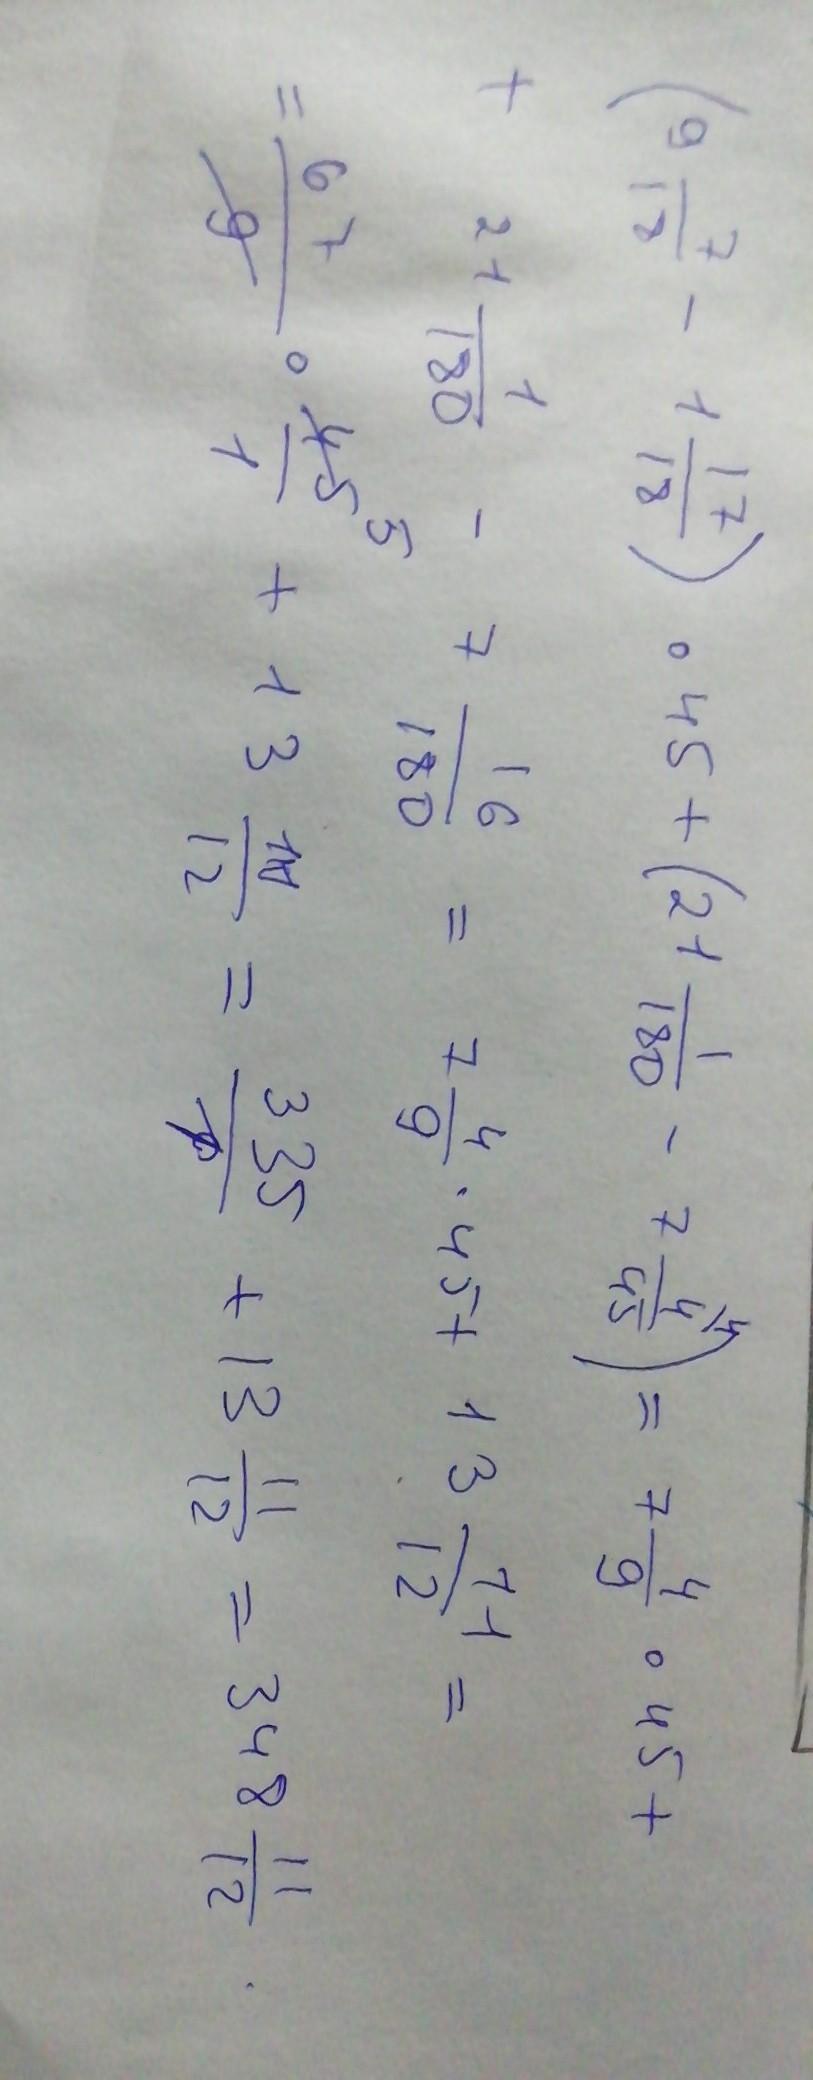 (9 7/18 - 1 17/18) ∘ 45 + (21 1/180 - 7 4/45 ^4) = 7 4/9 ∘ 45 +
+ 21 1/180 - 7 16/180 = 7 4/9 · 45 + 13 11/12 =
= 67/9 ∘ 45 5/1 + 13 11/12 = 335 + 13 11/12 = 348 11/12.